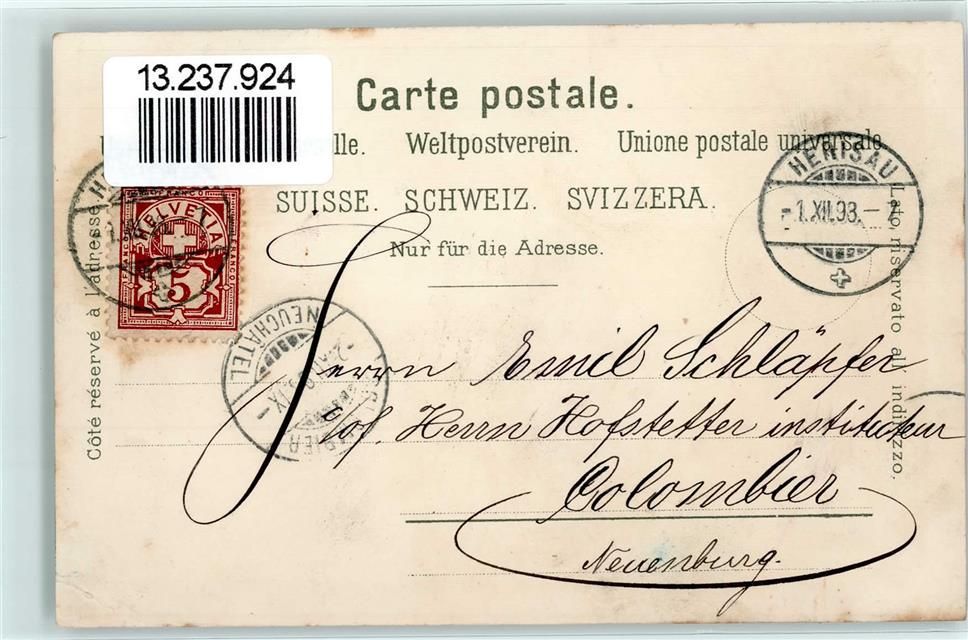 13.237.924
Carte postale.
lle. Weltpostverein. Unione postale universale
SUISSE. SCHWEIZ. SVIZZERA.
Nur für die Adresse.
Côté réservé à l'adresse
Lato riservato all' indirizzo.
HERISAU
-1.XII.98.-7
HELVETIA
FRANCO
5
NEUCHATEL
Herrn Emil Schläpfer
Herrn Hofstetter instituteur
Colombier
Neuenburg.